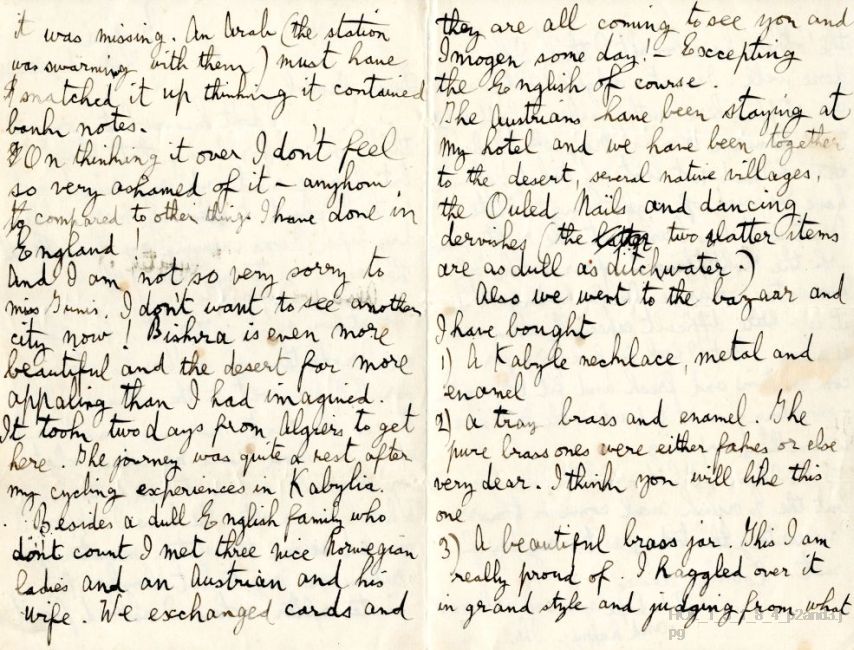 it was missing. An Arab (the station
was swarming with them) must have
snatched it up thinking it contained
bank notes.
On thinking it over I don't feel
so very ashamed of it – anyhow,
compared to other things I have done in
England!
And I am not so very sorry to
miss Tunis. I don't want to see another
city now! Biskra is even more
beautiful and the desert far more
appaling than I had imagined.
It took two days from Algiers to get
here. The journey was quite a rest after
my cycling experiences in Kabylia.
Besides a dull English family who
don't count I met three nice Norwegian
ladies and an Austrian and his
wife. We exchanged cards and
they are all coming to see you and
Imogen some day! – Excepting
the English of course.
The Austrians have been staying at
my hotel and we have been together
to the desert, several native villages,
the Ouled Naïls and dancing
dervishes (the two latter items
are as dull as ditchwater.)
Also we went to the bazaar and
I have bought
1) A Kabyle necklace, metal and
enamel
2) a tray brass and enamel. The
pure brass ones were either fakes or else
very dear. I think you will like this
one
3) A beautiful brass jar. This I am
really proud of. I haggled over it
in grand style and judging from what